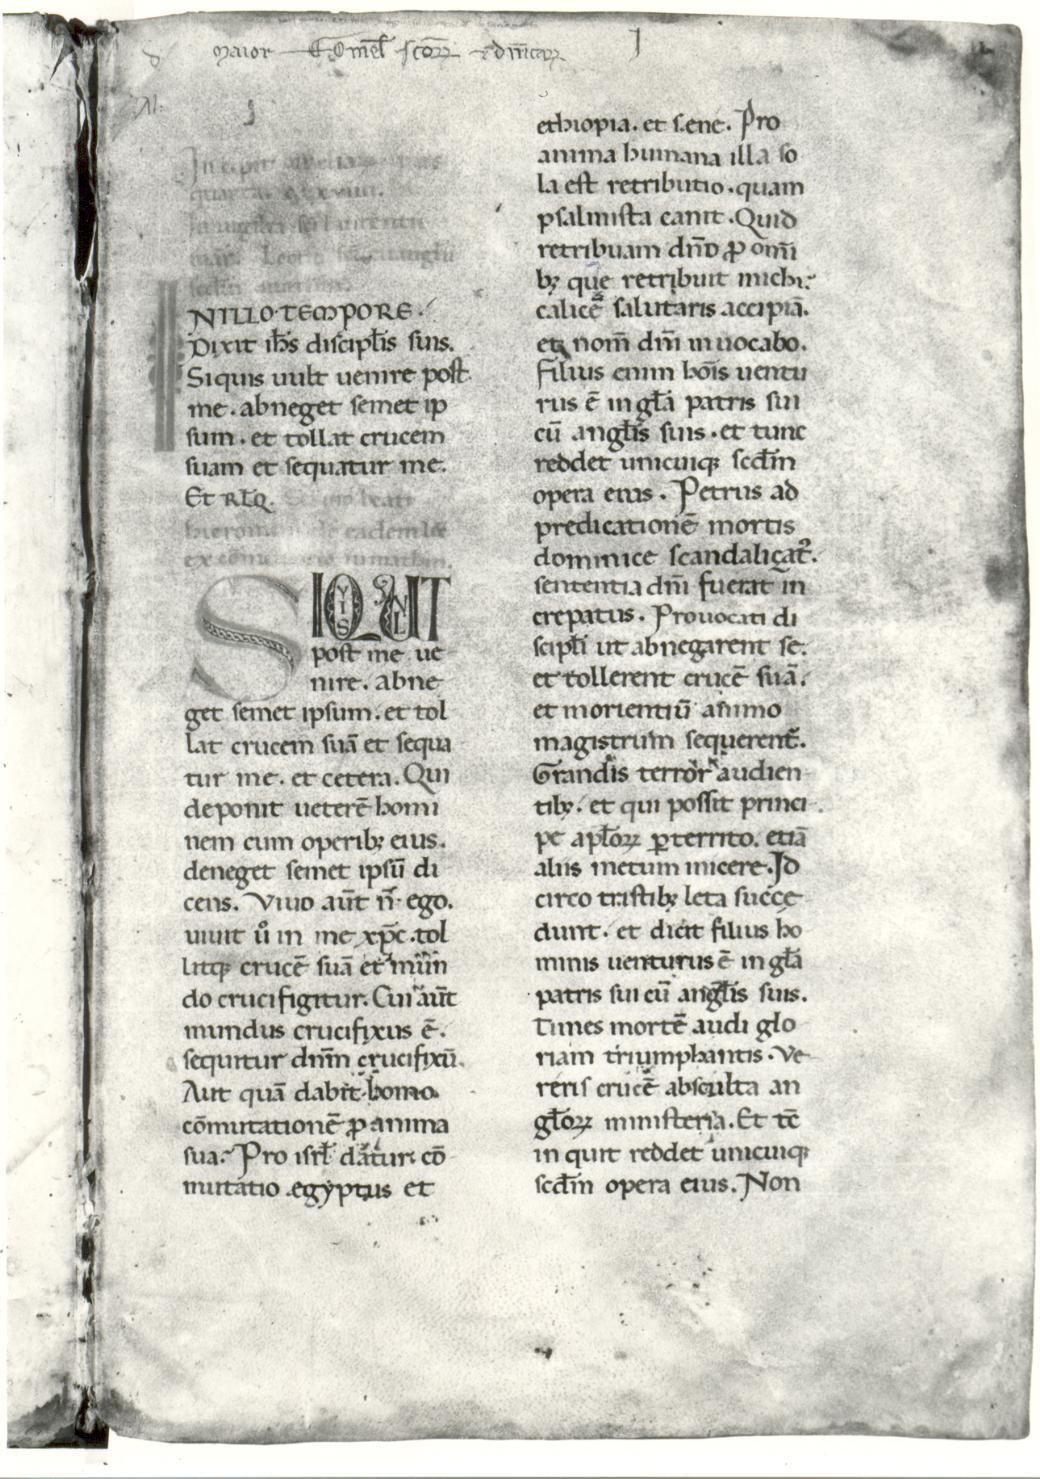 Maior
In
quarta
sci laurentii
Lectio
NILLO·TEMPORE.
Dixit ihs̄ discipl̄is suis.
Siquis uult uenire post
me. abneget semet ip
sum. et tollat crucem
suam et sequatur me.
Et RL̄Q. beati
de eadem
ex
SIQUIS UULT
post me ue
nire. abne
get semet ipsum. et tol
lat crucem suā et sequa
tur me. et cetera. Qui
deponit ueterē homi
nem cum operibꝫ eius.
deneget semet ipsū di
cens. Viuo aūt n̄ ego.
uiuit u̓ in me xp̄c. tol
litqꝫ crucē suā et mun
do crucifigitur. Cui aūt
mundus crucifixus ē.
sequitur dn̄m crucifixū.
Aut quā dabit homo
cōmutationē ꝓ anima
sua? Pro isrl̄ datur cō
mutatio egyptus et
ethiopia. et s.ene. Pro
anima humana illa so
la est retributio. quam
psalmista canit. Quid
retribuam dn̄o ꝓ om̄i
bꝫ que retribuit michi?
calicē salutaris accipiā.
et nom̄ dn̄i inuocabo.
Filius enim hōis uentu
rus ē in gl̄a patris sui
cū angl̄is suis. et tunc
reddet unicuiqꝫ scd̄m
opera eius. Petrus ad
predicationē mortis
dominice scandalizat᷑.
sententia dn̄i fuerat in
crepatus. Prouocati di
scipl̄i ut abnegarent se.
et tollerent crucē suā.
et morientiū animo
magistrum sequerent᷑.
Grandis terror audien
tibꝫ. et qui possit princi
pe apl̄oꝝ ꝑterrito. etiā
aliis metum inicere. Id
circo tristibꝫ leta succe
dunt. et dicit filius ho
minis uenturus ē in gl̄a
patris sui cū angl̄is suis.
Times mortē audi glo
riam triumphantis. Ve
reris crucē absculta an
gl̄oꝝ ministeria. Et tc̄
in quit reddet unicuiqꝫ
scd̄m opera eius. Non